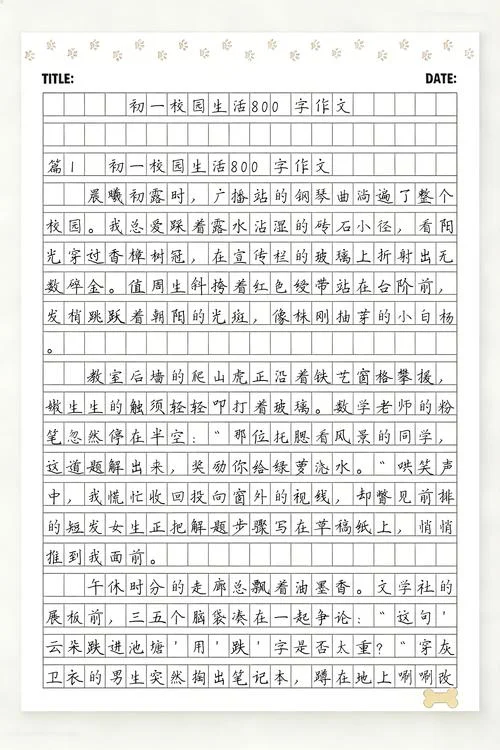 TITLE: DATE:
初一校园生活800 字作文
篇1 初一校园生活800 字作文
晨曦初露时，广播站的钢琴曲淌遍了整个
校园。我总爱踩着露水沾湿的砖石小径，看阳
光穿过香樟树冠，在宣传栏的玻璃上折射出无
数碎金。值周生斜挎着红色绶带站在台阶前，
发梢跳跃着朝阳的光斑，像株刚抽芽的小白杨
。
教室后墙的爬山虎正沿着铁艺窗格攀援，
嫩生生的触须轻轻叩打着玻璃。数学老师的粉
笔忽然停在半空："那位托腮看风景的同学，
这道题解出来，奖励你给绿萝浇水。"哄笑声
中，我慌忙收回投向窗外的视线，却瞥见前排
的短发女生正把解题步骤写在草稿纸上，悄悄
推到我面前。
午休时分的走廊总飘着油墨香。文学社的
展板前，三五个脑袋凑在一起争论："这句'
云朵跌进池塘'用'跌'字是否太重？"穿灰
卫衣的男生突然掏出笔记本，蹲在地上唰唰改